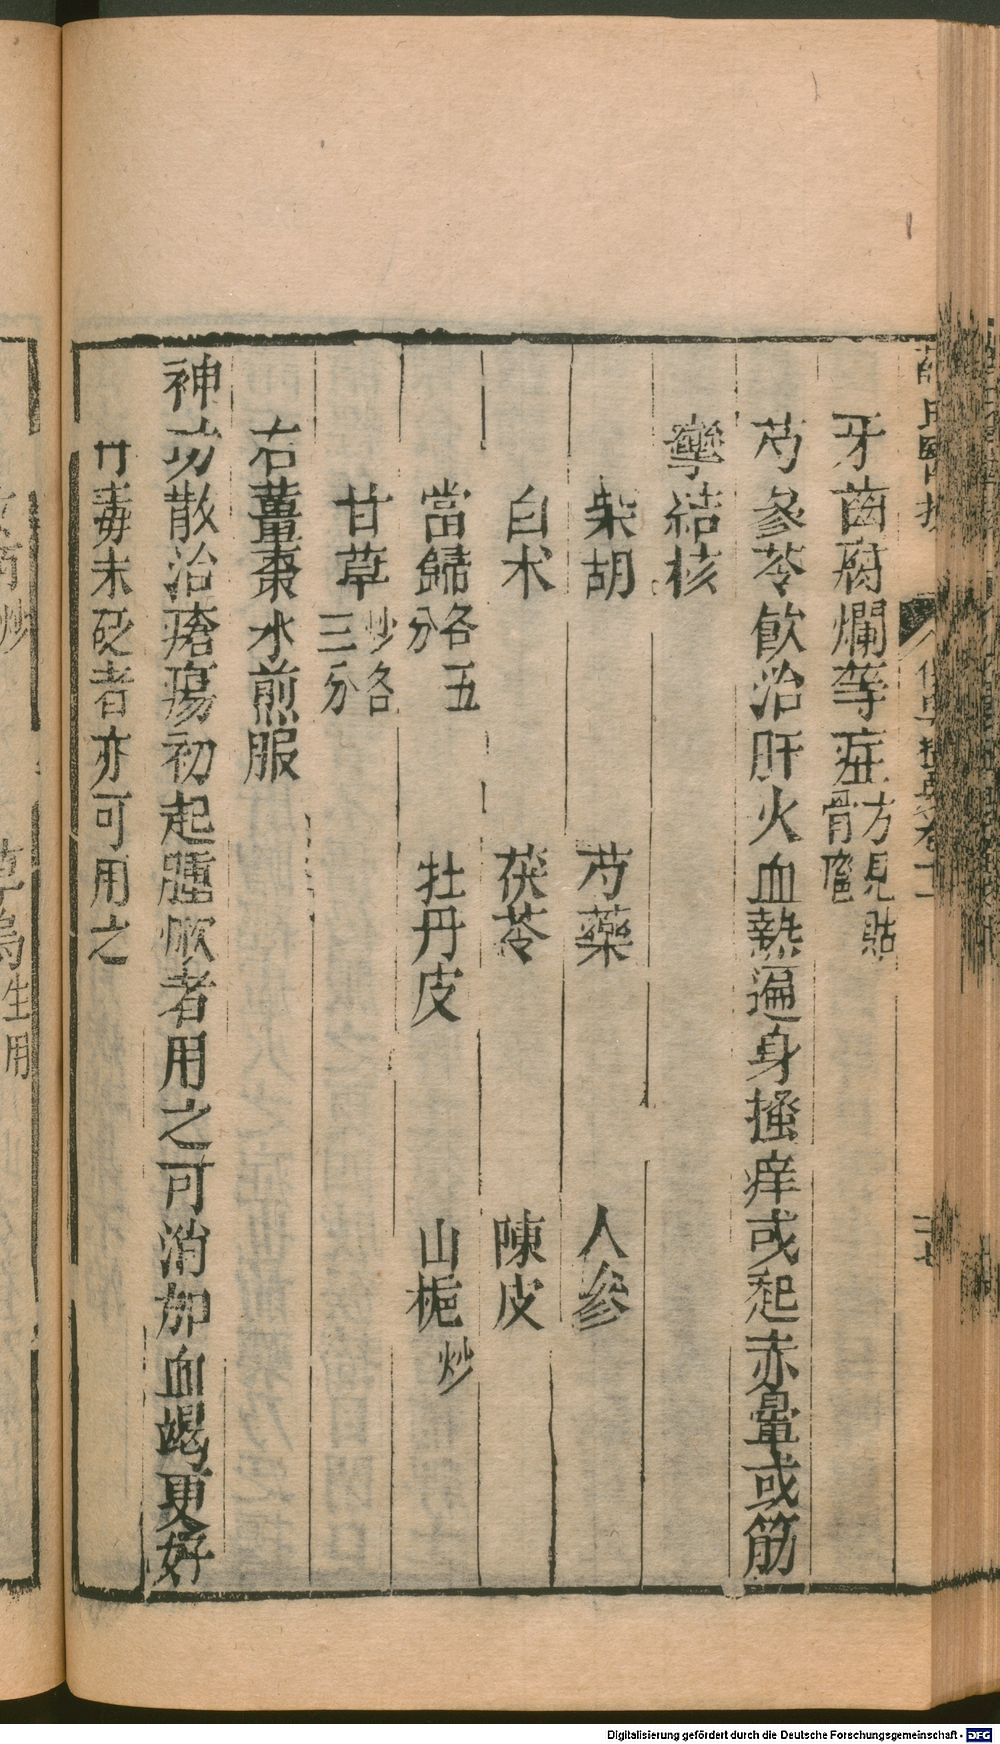 牙齒腐爛等症方見骷骨癰
芍參苓飲治肝火血熱遍身搔痒或起赤暈或筋
攣結核
柴胡 芍藥 人參
白术 茯苓 陳皮
當歸各五分 牡丹皮 山梔炒
甘草炒各三分
右薑棗水煎服
神功散治瘡瘍初起腫焮者用之可消加血竭更好
毒未砭者亦可用之
草烏生用
Digitalisierung gefördert durch die Deutsche Forschungsgemeinschaft - DFG